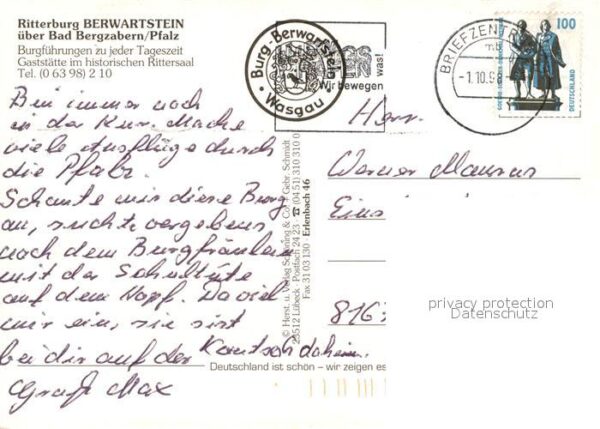 Ritterburg BERWARTSTEIN
über Bad Bergzabern/Pfalz
Burgführungen zu jeder Tageszeit
Gaststätte im historischen Rittersaal
Tel. (0 63 98) 2 10
Burg Berwartstein
Wasgau
was!
Wir bewegen
BRIEFZENTR
-1.10.9
100
DEUTSCHLAND
Bin immer noch
in der Kur. Mache
viele Ausflüge durch
die Pfalz.
Schaute mir diese Burg
an, suchte vergebens
nach dem Burgfräulein
mit der Schultüte
auf dem Kopf. Da viel
mir ein, sie sist
bei dir auf der Koutsch daheim.
Gruß Max
© Herst. u. Verlag Schöning & Co. + Gebr. Schmidt
23512 Lübeck · Postfach 24 23 · ☎ (04 51) 310 310 0
Fax 31 03 130 · Erlenbach 46
Herrn
Werner
Eins
816
privacy protection
Datenschutz
Deutschland ist schön – wir zeigen es